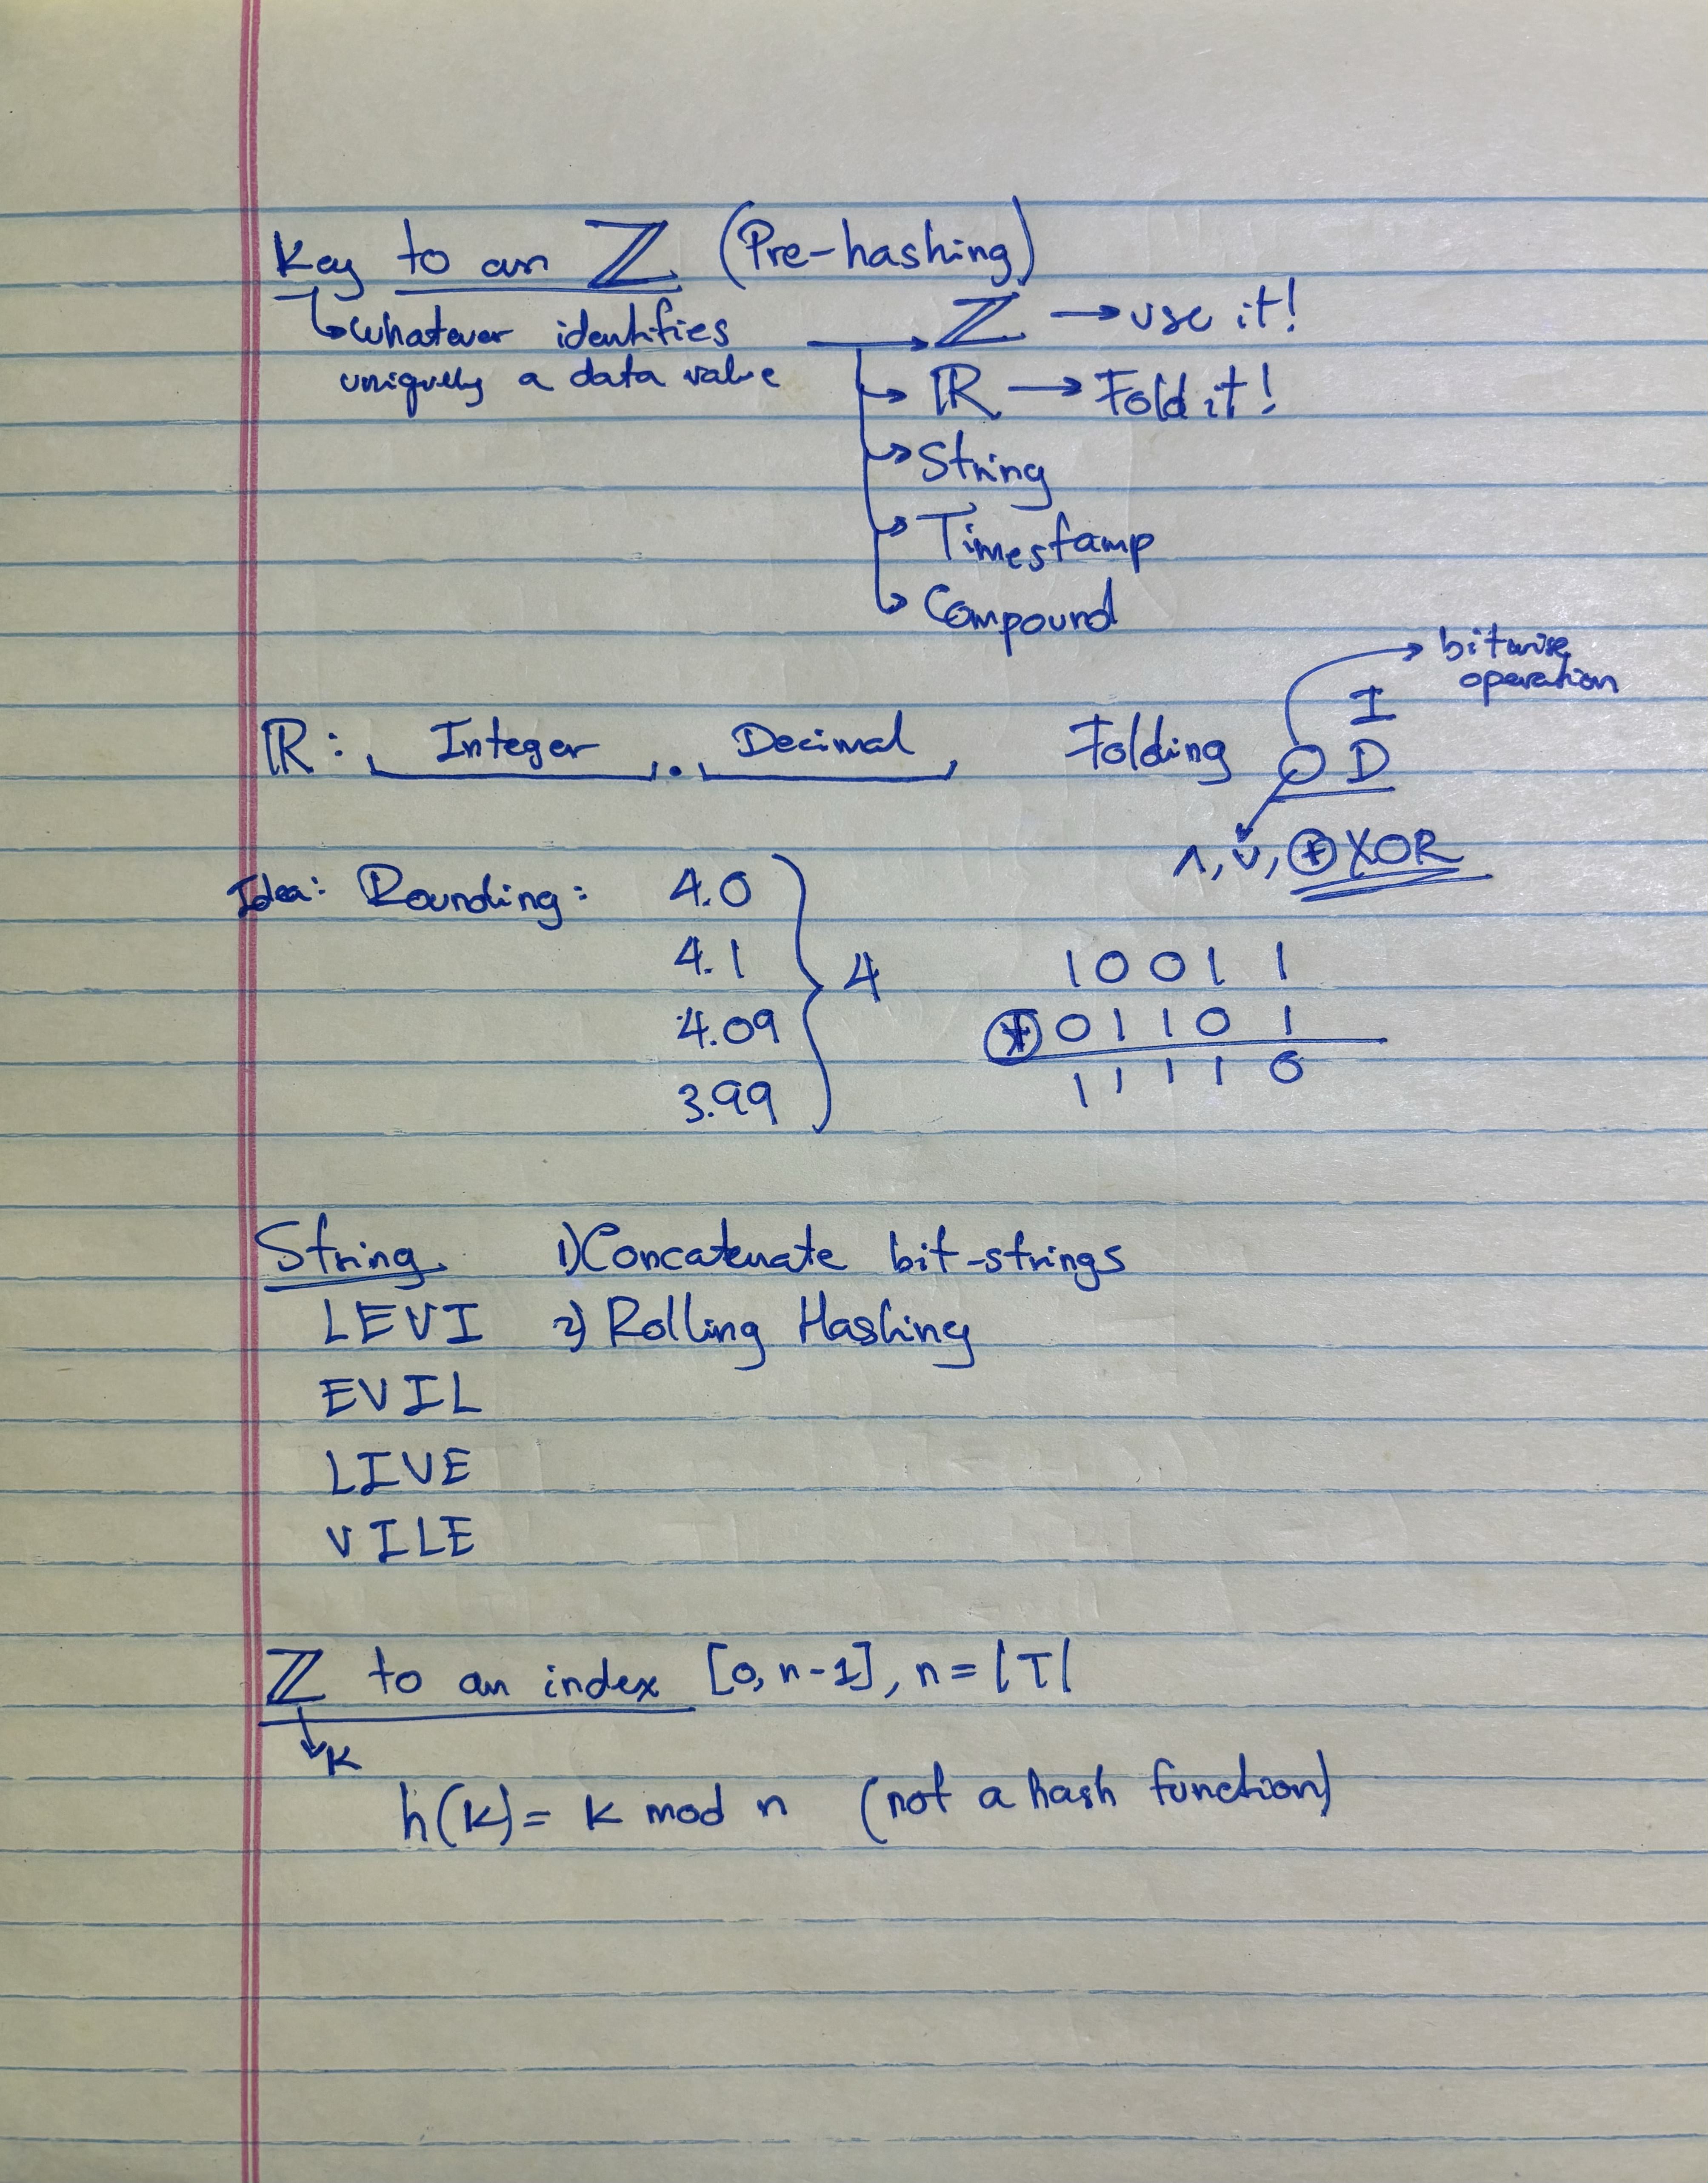 Key to an ℤ (Pre-hashing)
↳ whatever identifies
uniquely a data value
→ ℤ → use it!
→ ℝ → Fold it!
→ String
→ Timestamp
→ Compound
ℝ: Integer . Decimal
Folding
I
○ D
→ bitwise
operation
∧, ∨, ⊕ XOR
Idea: Rounding: 4.0
4.1
4.09
3.99
} 4
1 0 0 1 1
⊕ 0 1 1 0 1
1 1 1 1 0
String 1) Concatenate bit-strings
LEVI 2) Rolling Hashing
EVIL
LIVE
VILE
ℤ to an index [0, n-1], n = |T|
↓ K
h(K) = K mod n (not a hash function)